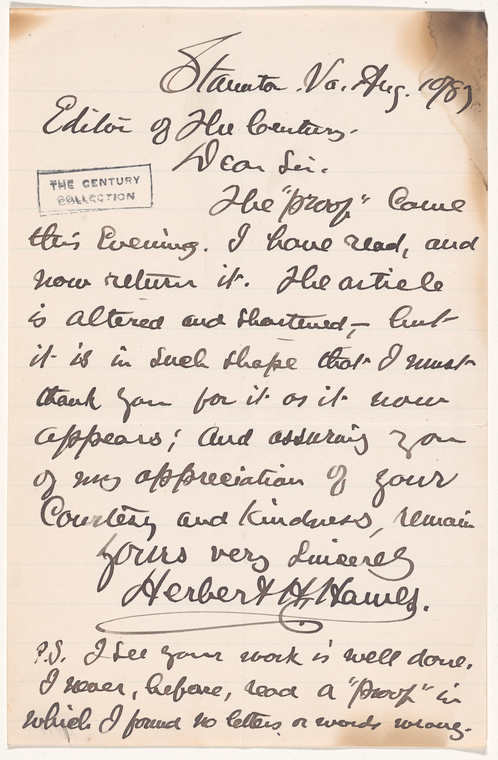 Staunton. Va. Aug. 19/87
Editor of The Century.
Dear Sir.
THE CENTURY
COLLECTION
The "proof" Came
this Evening. I have read, and
now return it. The article
is altered and shortened,- but
it is in such shape that I must
thank you for it as it now
appears; and assuring you
of my appreciation of your
Courtesy and kindness, remain
yours very sincerely
Herbert H. Hawes.
P.S. I see your work is well done.
I never, before, read a "proof" in
which I found no letters or words wrong.